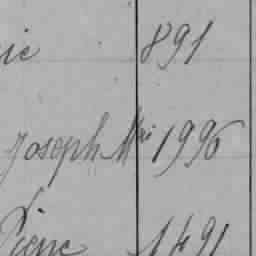 ie 891
Joseph Mai 1996
Pierre 1491